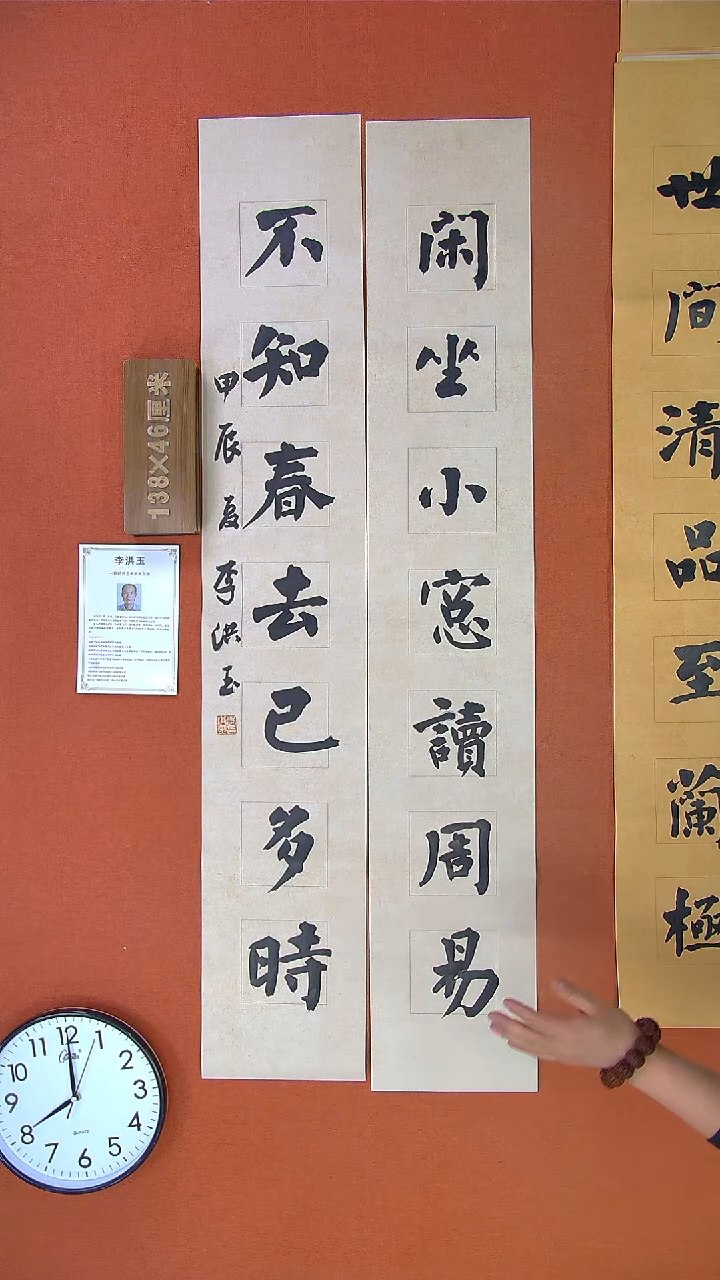 世间清品至蘭極
闲坐小窓讀周易
不知春去已多時
甲辰夏李洪玉
138×46厘米
李洪玉
12
1
2
3
4
5
6
7
8
9
10
11
QUARTZ